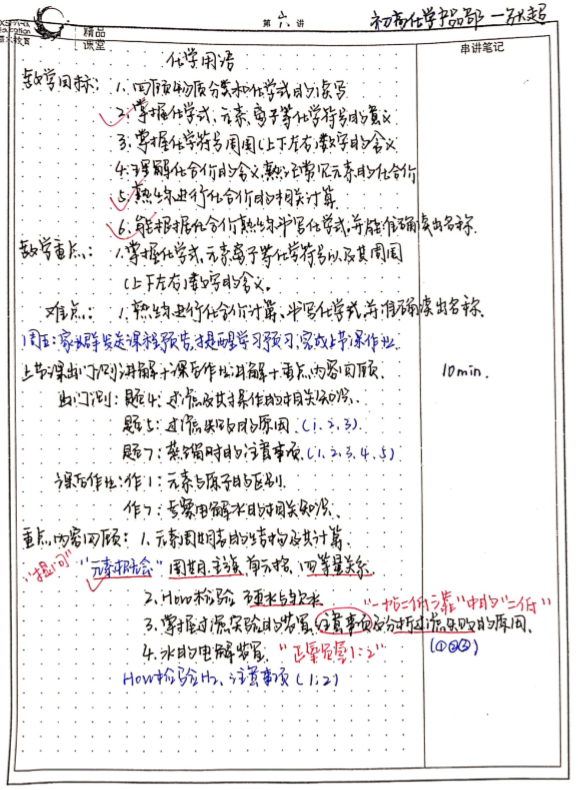 精品
课堂
第 六 讲
初高化学产品部 — 张超
串讲笔记
化学用语
教学目标: 1. 回顾物质分类和化学式的读写
2. 掌握化学式、元素、离子等化学符号的意义
3. 掌握化学符号周围(上下左右)数字的含义
4. 理解化合价的含义,熟记常见元素的化合价
5. 熟练进行化合价的相关计算
6. 能根据化合价熟练书写化学式,并能准确读出名称.
教学重点: 1. 掌握化学式、元素离子等化学符号以及其周围
(上下左右)数字的含义。
难点: 1. 熟练进行化合价计算、书写化学式,并准确读出名称.
周五: 家长群发送课程预告,提醒学习预习,完成上节课作业.
上节课出门测讲解+课后作业讲解+重点内容回顾. 10min.
出门测: 题4: 过滤及其操作的相关知识.
题5: 过滤失败的原因. (1、2、3).
题7: 蒸馏时的注意事项. (1、2、3、4、5)
课后作业: 作1: 元素与原子的区别.
作7: 考察电解水的相关知识.
重点内容回顾: 1. 元素周期表的结构及其计算.
"提问" "元素组成" 周期、主族、单元格、四等量关系.
2. How检验 硬水与软水 "一贴二低三靠"中的"二低"
3. 掌握过滤实验的装置、注意事项及分析过滤失败的原因.
4. 水的电解装置. "正氧负氢1:2" (①②③)
How检验H₂、注意事项 (1、2)